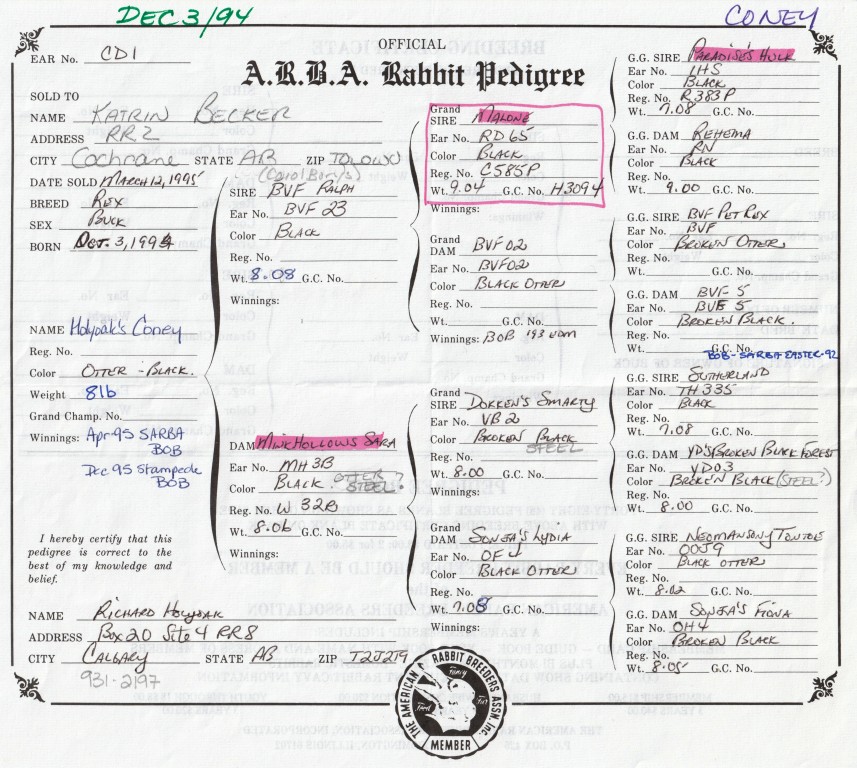 DEC 3/94
CONEY
OFFICIAL
A.R.B.A. Rabbit Pedigree
EAR No. CD1
SOLD TO
NAME KATRIN BECKER
ADDRESS RR2
CITY Cochrane STATE AB ZIP
DATE SOLD MARCH 12, 1995
BREED REX
SEX BUCK
BORN Oct. 3, 1994
NAME Holydak's Coney
Reg. No.
Color OTTER - BLACK
Weight 8lb
Grand Champ. No.
Winnings: Apr-95 SARBA
BOB
Dec 95 Stampede
BOB
I hereby certify that this
pedigree is correct to the
best of my knowledge and
belief.
NAME RICHARD HOLYDAK
ADDRESS Box 20 Site 4 RR8
CITY CALGARY STATE AB ZIP T2J2T9
931-2197
SIRE BVF RALPH
Ear No. BVF 23
Color BLACK
Reg. No.
Wt. 8.08 G.C. No.
Winnings:
DAM MINK HOLLOWS SARA
Ear No. MH3B
Color BLACK OTTER STEEL?
Reg. No. W 32B
Wt. 8.06 G.C. No.
Winnings:
Grand
SIRE MALONE
Ear No. RD65
Color BLACK
Reg. No. C585P
Wt. 9.04 G.C. No. H3094
Winnings:
Grand
DAM BVF02
Ear No. BVF02
Color BLACK OTTER
Reg. No.
Wt. G.C. No.
Winnings: BOB
Grand
SIRE DOKKEN'S SMARTY
Ear No. VB2
Color BROKEN BLACK
STEEL
Reg. No.
Wt. 8.00 G.C. No.
Winnings:
Grand
DAM SONJA'S LYDIA
Ear No. OF4
Color BLACK OTTER
Reg. No.
Wt. 7.08 G.C. No.
Winnings:
G.G. SIRE PARADISE'S HULK
Ear No. 1HS
Color BLACK
Reg. No. R383P
Wt. 7.08 G.C. No.
G.G. DAM REHEMA
Ear No. RN
Color BLACK
Reg. No.
Wt. 9.00 G.C. No.
G.G. SIRE BVF PET REX
Ear No. BVF
Color BROKEN OTTER
Reg. No.
Wt. G.C. No.
G.G. DAM BVF 5
Ear No. BVF 5
Color BROKEN BLACK
Reg. No.
Wt. G.C. No.
BOB - SARBA EASTER-92
G.G. SIRE SUTHERLAND
Ear No. TH335
Color BLACK
Reg. No.
Wt. 7.08 G.C. No.
G.G. DAM YD'S BROKEN BLACK FOREST
Ear No. YD03
Color BROKEN BLACK (STEEL?)
Reg. No.
Wt. 8.00 G.C. No.
G.G. SIRE
Ear No. OOJ9
Color BLACK OTTER
Reg. No.
Wt. 8.02 G.C. No.
G.G. DAM SONJA'S FIONA
Ear No. OH4
Color BROKEN BLACK
Reg. No.
Wt. 8.05 G.C. No.
THE AMERICAN RABBIT BREEDERS ASSN. Inc.
MEMBER